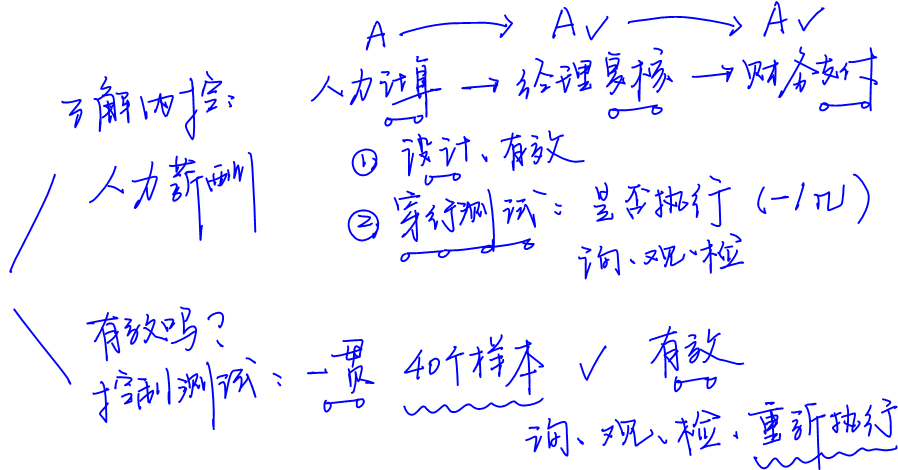 A → A✓ → A✓
了解内控: 人力计算 → 经理复核 → 财务支付
人力薪酬
① 设计、有效
② 穿行测试: 是否执行 (一个)
询、观、检
有效吗?
控制测试: 一贯 40个样本 ✓ 有效
询、观、检、重新执行